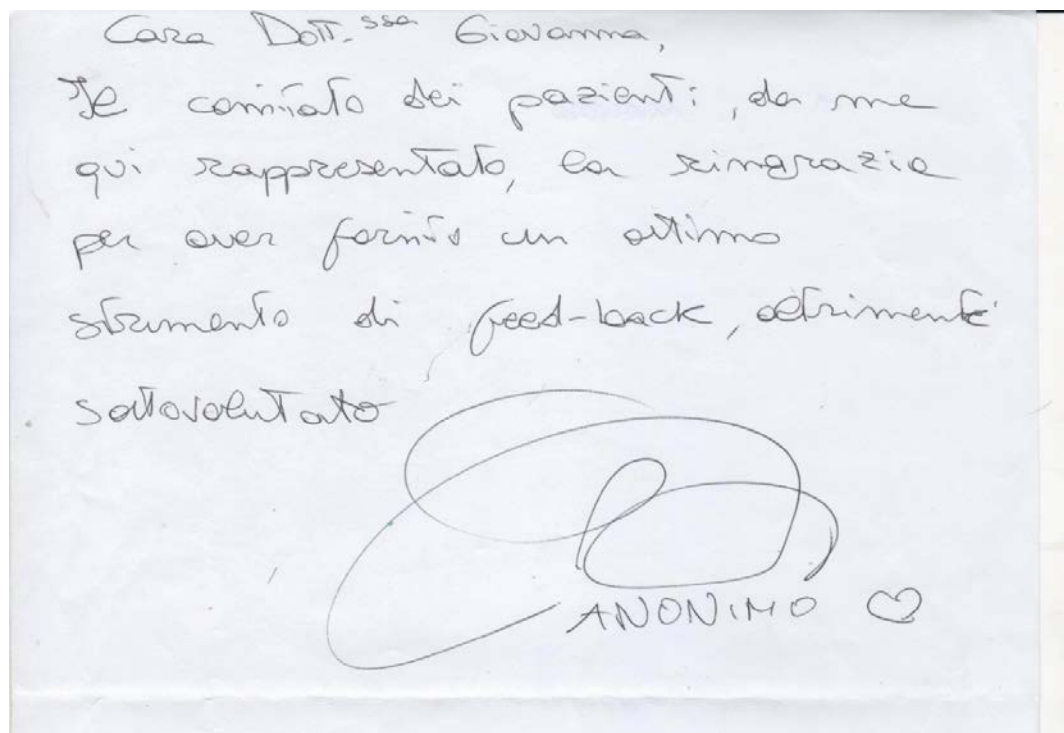 Cara Dott.ssa Giovanna,
Il comitato dei pazienti, da me
qui rappresentato, la ringrazia
per aver fornito un ottimo
strumento di feed-back, altrimenti
sottovalutato
ANONIMO